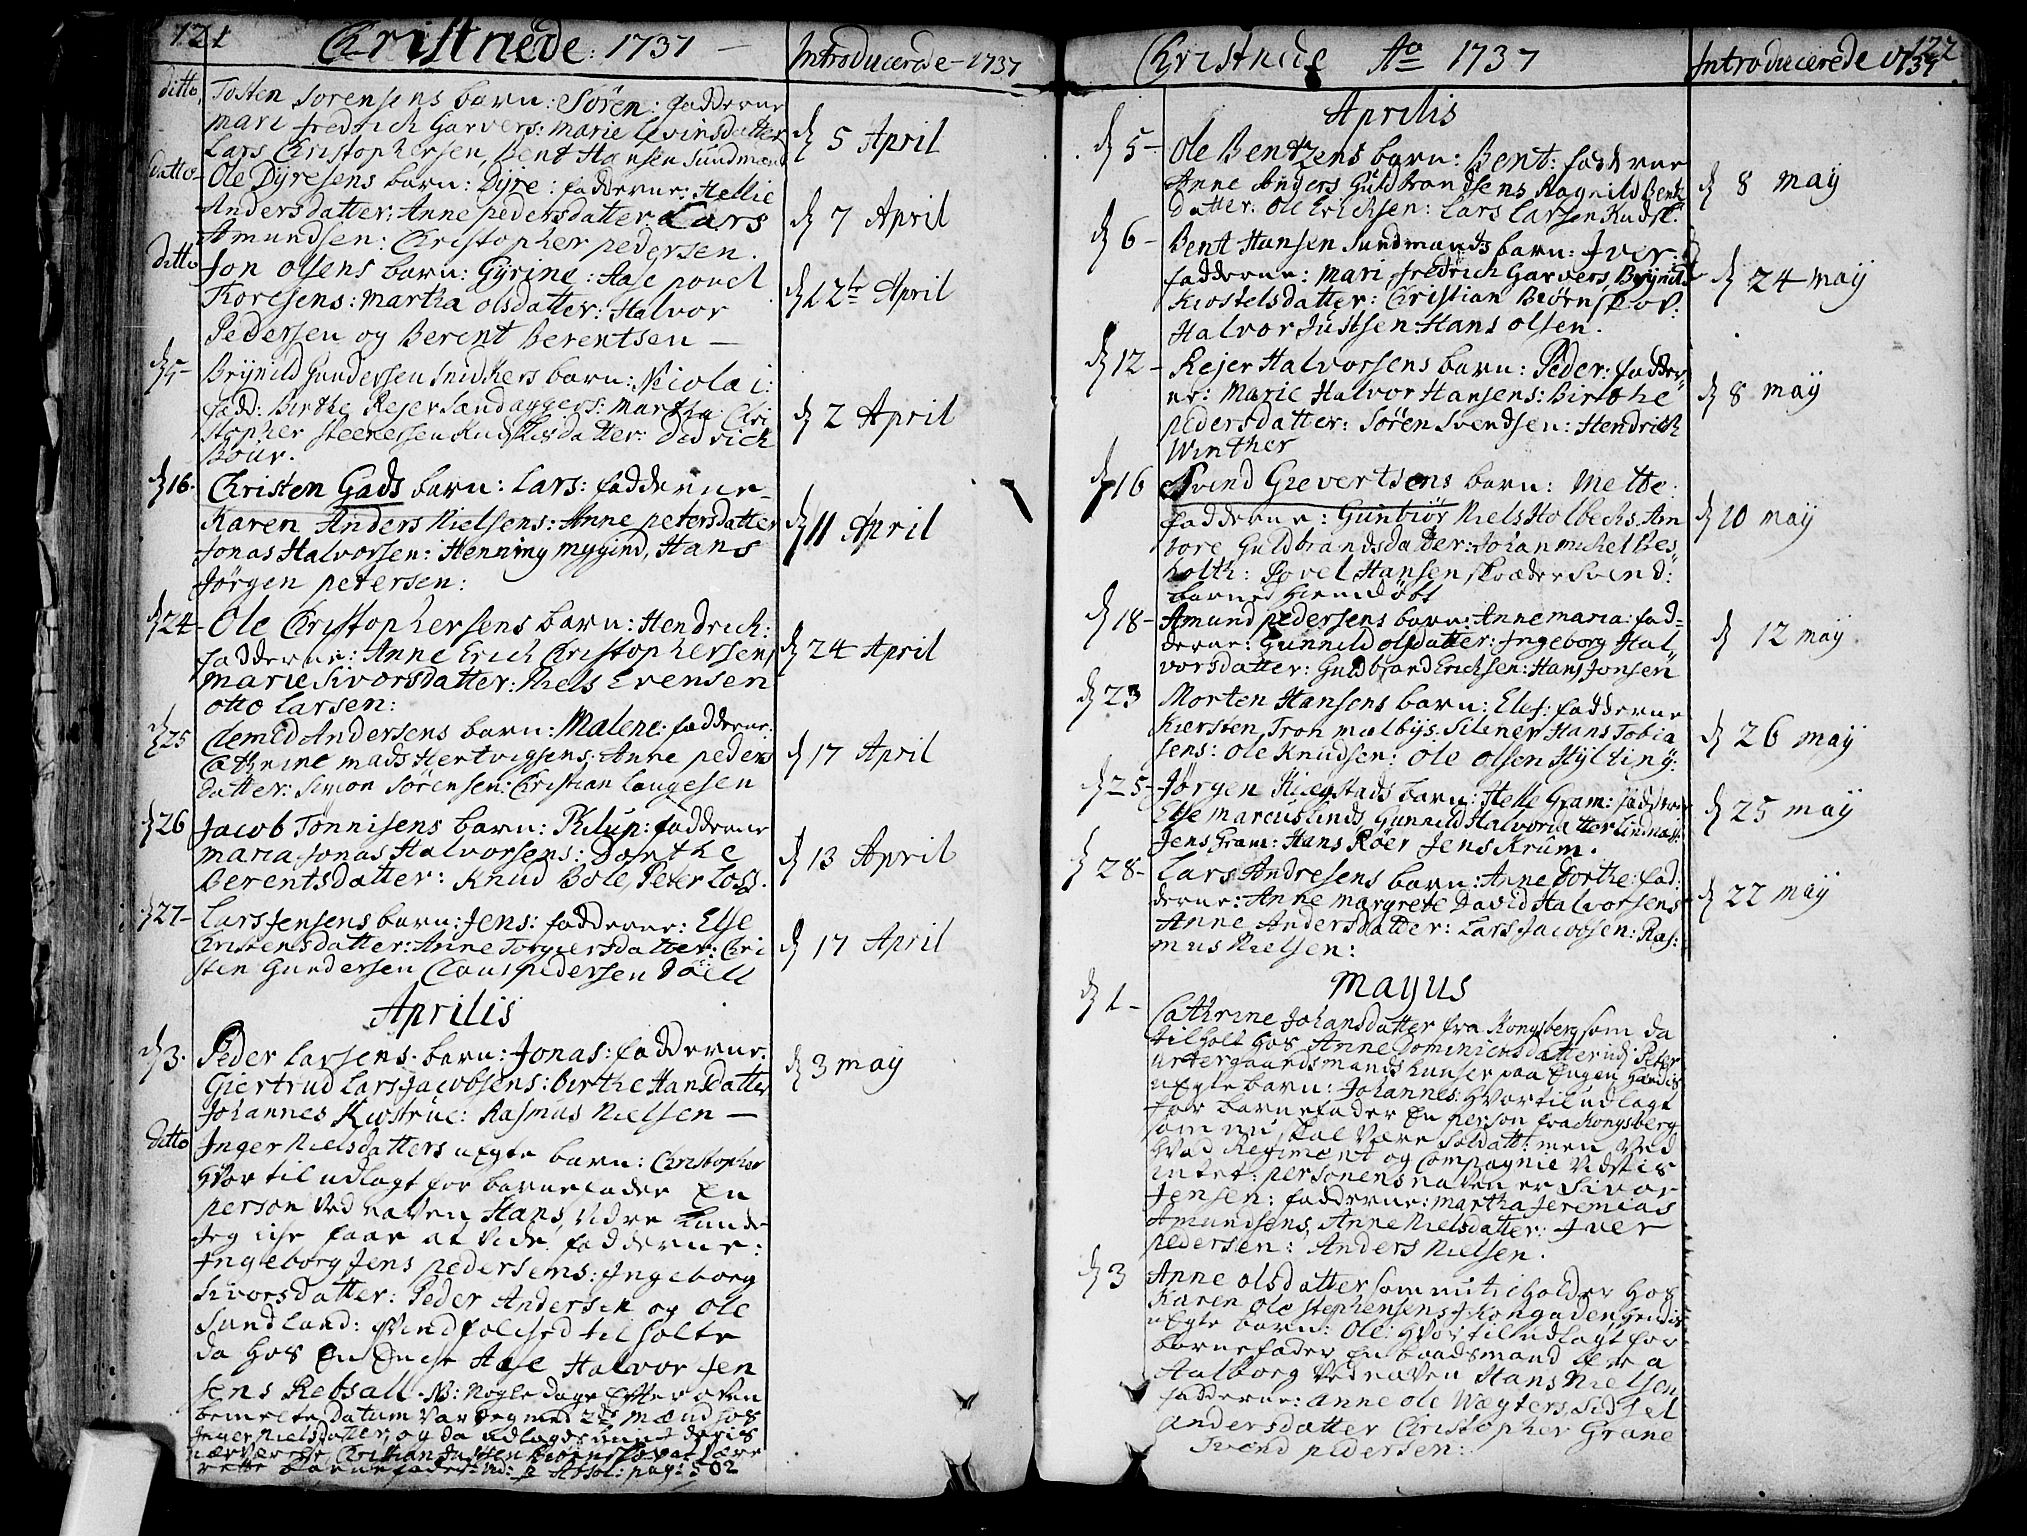 121
Christnede: 1737 —
Introducerede — 1737
ditto
Tosten Sorensens barn: Sören: fadderne
Mari fredrich Garvers: Marie Levinsdatter
Lars Christophersen, Bent Hansen Sundmand
d 5 April
ditto
Ole Dyresens barn: Dyre: fadderne: Hellie
Andersdatter: Anne pedersdatter Lars
Amundsen: Christopher pedersen.
d 7 April
ditto
Jon Olsens barn: Gyrine: Aase povel
Koresens: Martha olsdatter: Halvor
Pedersen og Berent Berentsen —
d 12te April
d 5-
Brynild Gundersen Snidkers barn: Nicolai:
fadd: Birthe Rejer Sandaggers: Martha Chri
stopher datter: Didrich
Boür.
d 2 April
d 16.
Christen Gads barn: Lars: fadderne
Karen Anders Nielsens: Anne petersdatter
Jonas Halvorsen: Henning Mygind, Hans
Jörgen petersen:
d 11 April
d 24-
Ole Christophersens barn: Hendrich:
fadderne: Anne Erich Christophersens
Marie Sivorsdatter: Niels Evensen
Otto Larsen:
d 24 April
d 25
Clemed Andersens barn: Malene: fadderne:
Cathrine Mads Hertvigsens: Anne peders
datter: Simon Sörensen: Christian Laugesen
d 17 April
d 26
Jacob Tonnisens barn: Philup: fadderne
Maria Jonas Halvorsens: Dorthe
Berentsdatter: Knud Bole, Peter Loss.
d 13 April
d 27-
Lars Jensens barn: Jens: fadderne: Else
Christensdatter: Anne Torgiersdatter: Chri
sten Gundersen Claus pedersen
d 17 April
Aprilis
d 3.
Peder Larsens barn: Jonas: fadderne
Giertrud Lars Jacobsens: Birthe Hansdatter
Johannes Kustrue: Rasmus Nielsen —
d 3 may
ditto
Inger Nielsdatters uegte barn: Christopher
hvor til udlagt for barnefader En
person ved naven Hans, vidre kunde
Jeg ike faae at vide. fadderne:
Ingeborg Jens pedersens: Ingeborg
Sivorsdatter: Peder Andersen og Ole
Sundland: qvindfolched til holte
da hos Aase Halvor Jen
Jens Rebsall. NB: Nogle dage Efter oven
bemelte datum var Jeg med 2de Mænd hos
Inger Nielsdatter, og da udlagde hun i deris
nærværelse Christian Justsen at være
rette barnefader: vid: p Absol: pag: 502
122
Christnede Ao 1737
Introducerede 1737
Aprilis
d 5-
Ole Bentzens barn: Bent: fadderne
Anne Anders Guldbrandsens Ragnild Bent
datter: Ole Erichsen: Lars Larsen Kudsk.
d 8 may
d 6-
Bent Hansen Sundmands barn: Iver:
fadderne: Mari fredrich Garvers, Brynild
Kiostelsdatter: Christian Biörnskov:
Halvor Justsen: Hans Olsen.
d 24 may
d 12-
Rejer Halvorsens barn: Peder: fadder-
ne: Marie Halvor Hansens: Birthe
pedersdatter: Sören Svendsen: Hendrich
Winther
d 8 may
d 16
Svend Grevertsens barn: Mette:
fadderne: Gunbiör Niels Holbechs, An
bore Guldbrandsdatter: Johan Michel Bes
holth: Povel Hansen skræder Svend:
barnet hiemdöbt
d 10 may
d 18-
Amund pedersens barn: Anne Maria: fad-
derne: Gunnild olsdatter: Ingeborg Hal-
vorsdatter: Guldbrand Erichsen: Hans Jonsen
d 12 may.
d 23
Morten Hansens barn: Elef: fadderne
Kiersten Tron Malbys. Hans Tobia
sens: Ole Knudsen: Ole Olsen Hylting:
d 26 may
d 25-
Jörgen barn: Helle Gram: fadderne
Else Marcus Linds Gunnild Halvorsdatter
Jens Gram: Hans Röer Jens Krum.
d 25 may
d 28-
Lars Andresens barn: Anne Dorthe: fad:
derne: Anne Margrete David Halvorsens
Anne Andersdatter: Lars Jacobsen: Ras:
mus Nielsen:
d 22 may
Majus
d 1-
Cathrine Johansdatter fra Kongsberg som da
tilholt hos Anne Dominicusdatter udi Peter
hunser paa Engen, hendis
uegte barn: Johannes: hvortil udlagt
for barnefader En person fra Kongsberg
som nu skal være soldatt: men ved
hvad Regiment og Compagnie vidstis
intet: personens naven er Sivor
Jensen: fadderne: Martha Jeremias
Amundsens, Anne Nielsdatter: Iver
pedersen: Anders Nielsen.
d 3
Anne Olsdatter som nu tilholder hos
Karen Ole Stephensens i Kongaden, hendis
uegte barn: Ole: hvortil udlagt for
barnefader En baadsmand
Aalborg ved naven Hans Nielsen
fadderne: Anne Ole Wægters, Sidsel
Andersdatter Christopher Grane
Svend pedersen: